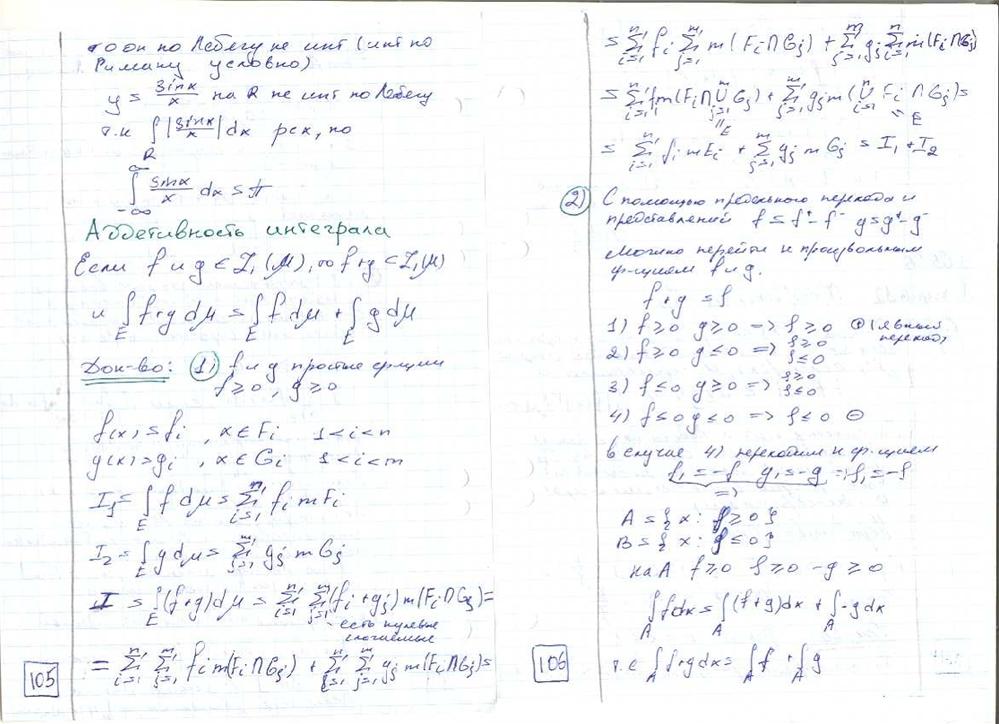 то он по Лебегу не инт (инт по
Риману условно)
y = sinx/x на R не инт по Лебегу
т.к ∫_R |sinx/x| dx расх, но
∫_{-∞}^{∞} sinx/x dx = π
Аддетивность интеграла
Если f и g ∈ L₁(μ), то f+g ⊂ L₁(μ)
и ∫_E f+g dμ = ∫_E f dμ + ∫_E g dμ
Док-во: 1) f и g простые ф-ции
f ≥ 0, g ≥ 0
f(x) = fi, x ∈ Fi 1<i<n
g(x) = gi, x ∈ Gi 1<i<m
I₁ = ∫_E f dμ = Σ_{i=1}^{n} fi m Fi
I₂ = ∫_E g dμ = Σ_{j=1}^{m} gj m Gj
I = ∫_E (f+g) dμ = Σ_{i=1}^{n} Σ_{j=1}^{m} (fi + gj) m(Fi ∩ Gj) =
есть нулевые
слогаемые
= Σ_{i=1}^{n} Σ_{j=1}^{m} fi m(Fi ∩ Gj) + Σ_{i=1}^{n} Σ_{j=1}^{m} gj m(Fi ∩ Gj) =
105
= Σ_{i=1}^{n} fi Σ_{j=1}^{m} m(Fi ∩ Gj) + Σ_{j=1}^{m} gj Σ_{i=1}^{n} m(Fi ∩ Gj)
= Σ_{i=1}^{n} fm(Fi ∩ ∪_{j=1}^{m} Gj) + Σ_{j=1}^{m} gj m(∪_{i=1}^{n} Fi ∩ Gj) =
= E = E
= Σ_{i=1}^{n} fi m Ei + Σ_{j=1}^{m} gj m Gj = I₁ + I₂
2) С помощью предельного перехода и
представлений f = f⁺ - f⁻ g = g⁺ - g⁻
Можно перейти к произвольным
ф-циям f и g.
f + g = ρ
1) f ≥ 0 g ≥ 0 => ρ ≥ 0 ⊕ (явный
переход)
2) f ≥ 0 g ≤ 0 => ρ ≥ 0 ρ ≤ 0
3) f ≤ 0 g ≥ 0 => ρ ≥ 0 ρ ≤ 0
4) f ≤ 0 g ≤ 0 => ρ ≤ 0 ⊖
в случае 4) переходим к ф-циям
f₁ = -f g₁ = -g => ρ₁ = -ρ
=>
A = { x : ρ ≥ 0 }
B = { x : ρ ≤ 0 }
на A f ≥ 0 ρ ≥ 0 -g ≥ 0
∫_A f dx = ∫_A (f+g) dx + ∫_A -g dx
т.е ∫_A f+g dx = ∫_A f + ∫_A g
106